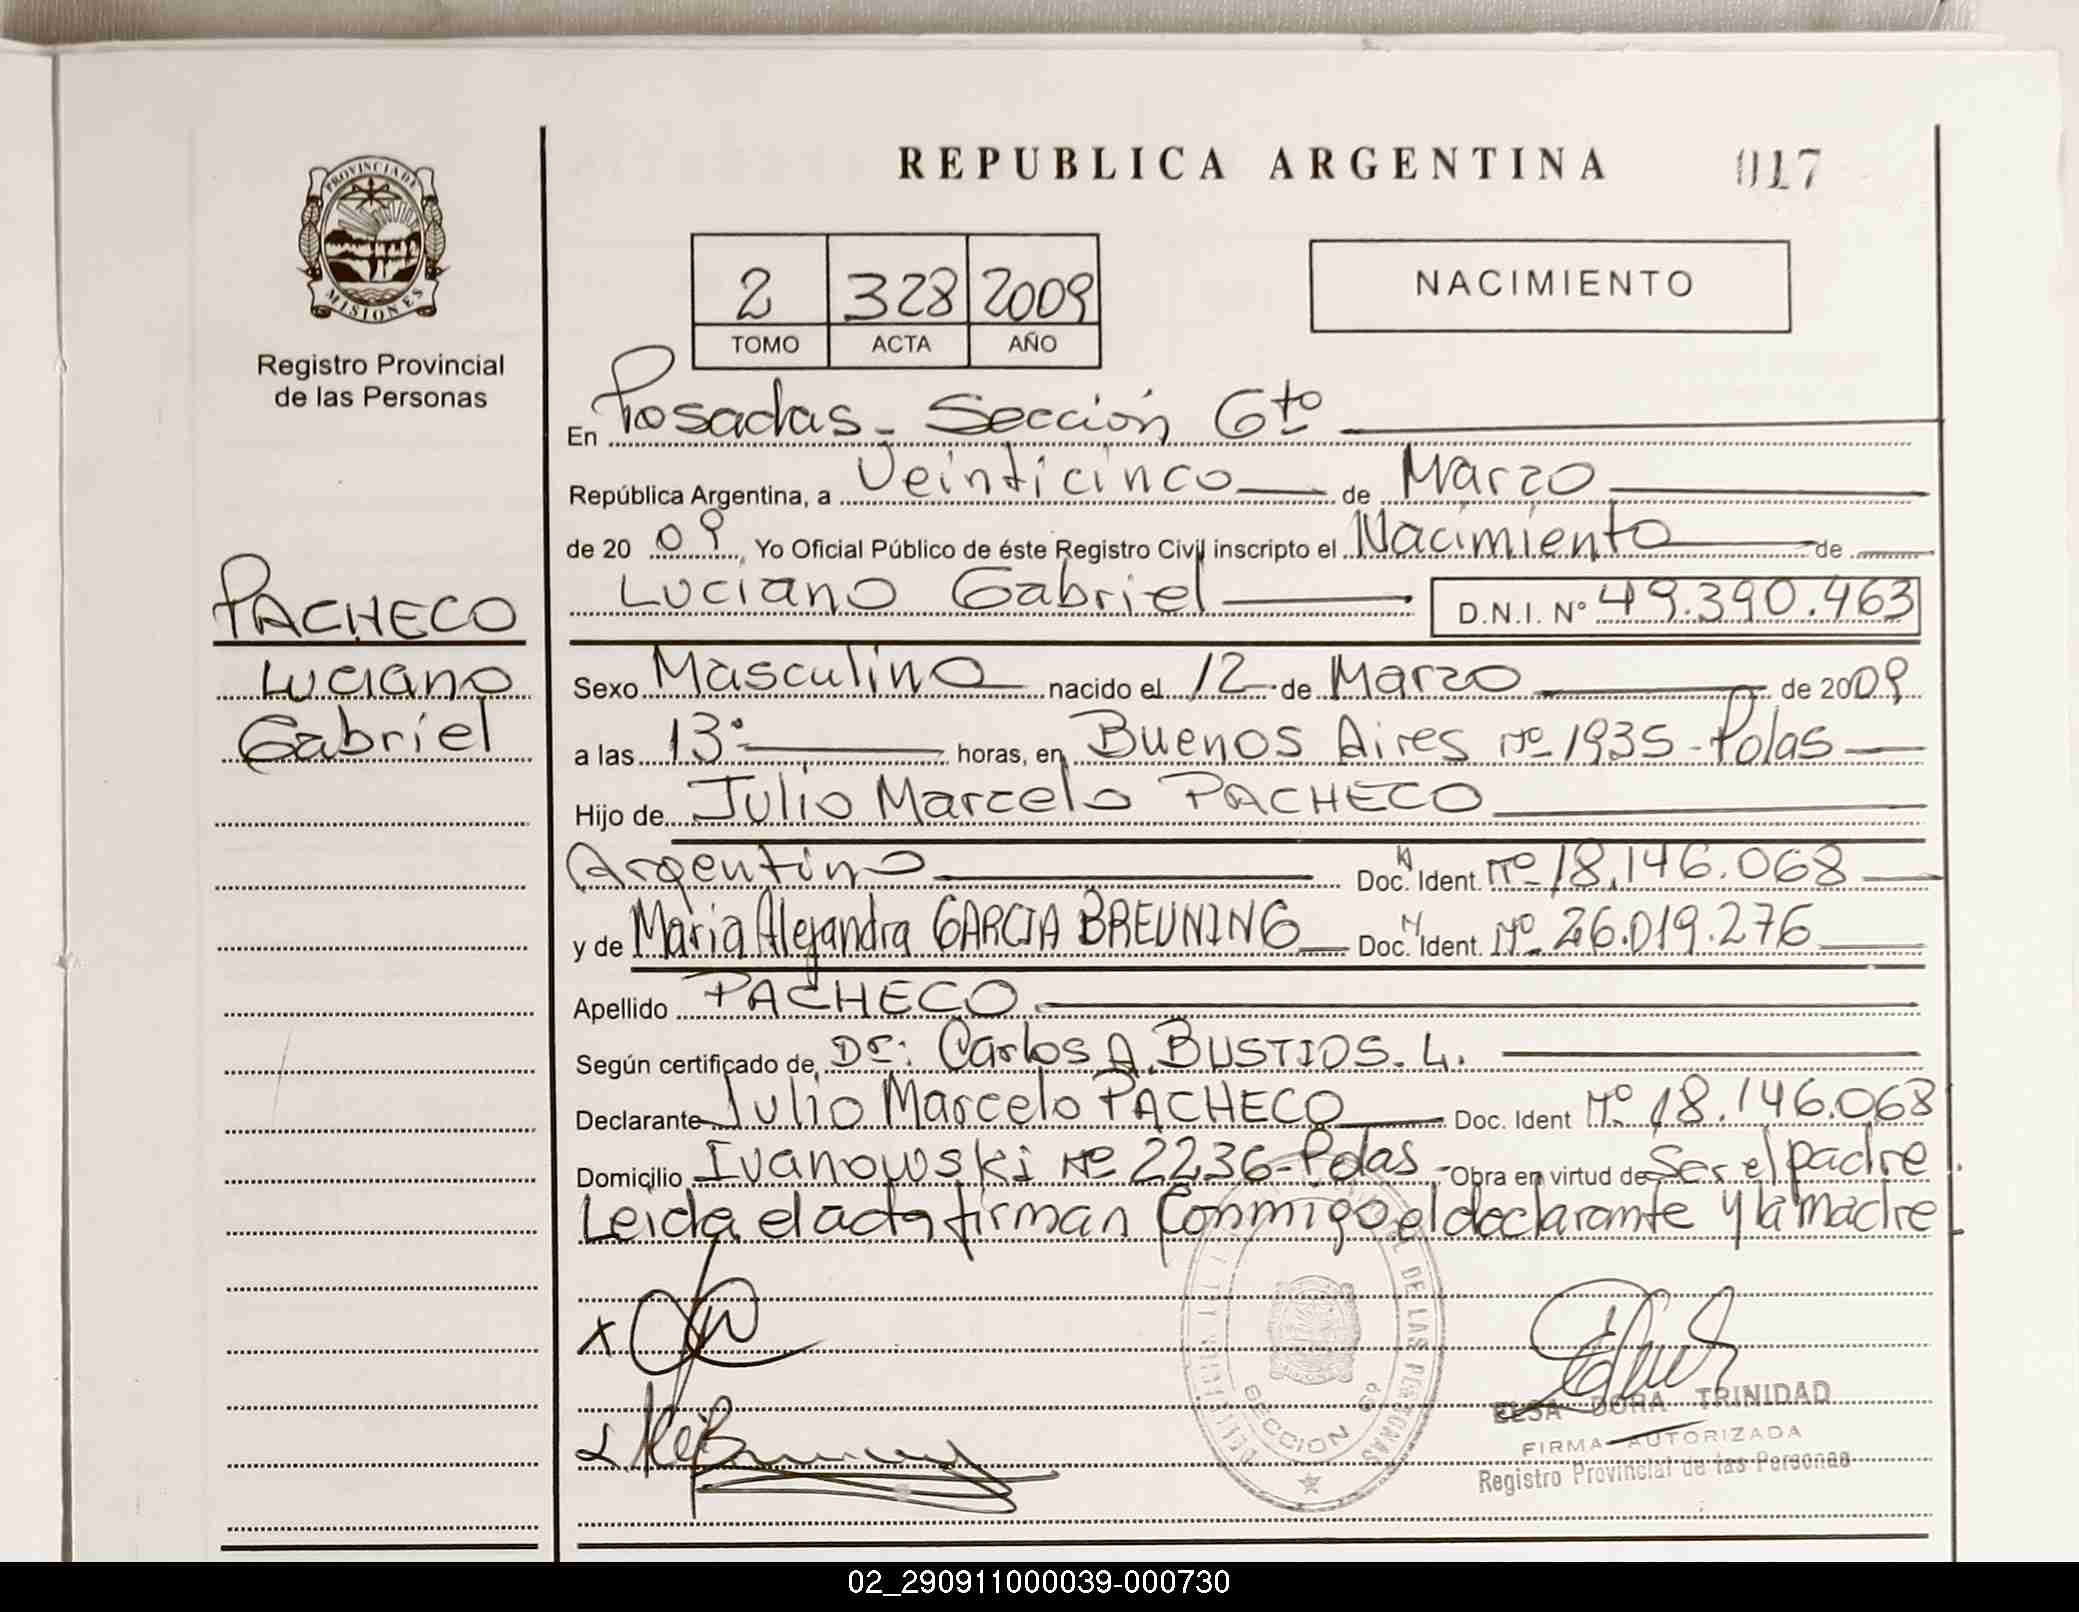 REPUBLICA ARGENTINA
017
PROVINCIA DE
MISIONES
Registro Provincial
de las Personas
2 328 2009
TOMO ACTA AÑO
NACIMIENTO
En Posadas - Sección 6to
República Argentina, a Veinticinco de Marzo
de 2009, Yo Oficial Público de éste Registro Civil inscripto el Nacimiento de
Luciano Gabriel D.N.I. Nº 49.390.463
PACHECO
Luciano
Gabriel
Sexo Masculino nacido el 12 de Marzo de 2009
a las 13: horas, en Buenos Aires Nº 1935 - Pdas
Hijo de Julio Marcelo PACHECO
Argentino Doc. Ident. Nº 18.146.068
y de Maria Alejandra GARCIA BREUNING Doc. Ident. Nº 26.019.276
Apellido PACHECO
Según certificado de Dr: Carlos A. BUSTIOS. L.
Declarante Julio Marcelo PACHECO Doc. Ident Nº 18.146.068
Domicilio Ivanowski Nº 2236 - Pdas - Obra en virtud de Ser el padre.
Leida el acta firman Conmigo el declarante y la madre
DE LAS PERSONAS
SECCION 6º
ELSA DORA TRINIDAD
FIRMA AUTORIZADA
Registro Provincial de las Personas
02_290911000039-000730